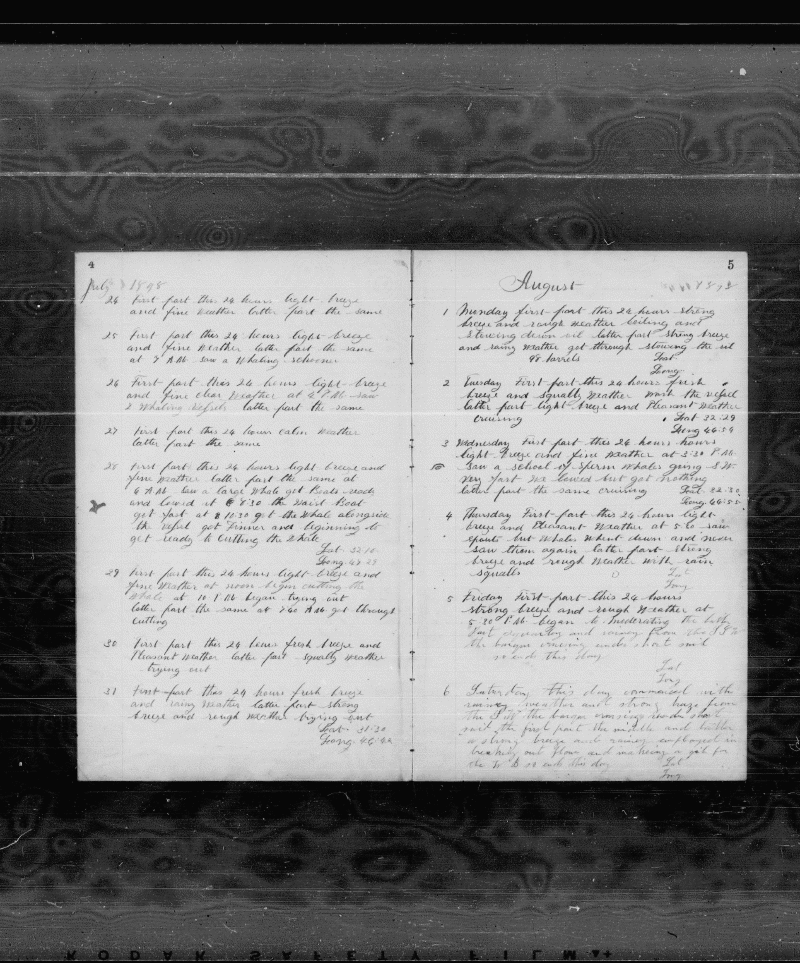 4
July 1898
24 First part this 24 hours light breeze
and fine weather latter part the same
25 First part this 24 hours light breeze
and fine Weather latter part the same
at 7 AM saw a Whaling schooner
26 First part this 24 hours light breeze
and fine clear Weather at 4 P.M. saw
2 Whaling Vessels latter part the same
27 First part this 24 hours calm Weather
latter part the same
28 First part this 24 hours light breeze and
fine Weather latter part the same at
6 A M. saw a large Whale got Boats ready
and lowed at 6.30 the Waist Boat
got fast at 8 10.30 got the Whale alongside
the vessel got Dinner and beginning to
get ready to Cutting the Whale
Lat. 32 10
Long. 47 29
29 First part this 24 hours light breeze and
fine Weather at noon began cutting the
Whale at 10 P M began trying out
latter part the same at 7 40 A M got through
Cutting
30 First part this 24 hours fresh breeze and
Pleasant Weather latter part squally weather
trying out
31 First part this 24 hours fresh breeze
and rainy Weather latter part strong
breeze and rough weather trying out
Lat. 31-30
Long. 46-42
5
August 1898
1 Munday first part this 24 hours strong
breeze and rough weather boiling and
Stowing down oil latter part strong breeze
and rainy weather got through stowing the oil
98 barrels Lat.
Long.
2 Tuesday First part this 24 hours fresh
breeze and squally Weather the vessel
latter part light breeze and Pleasant Weather
cruising Lat 32-29
Long 46-54
3 Wednesday First part this 24 hours hours
light breeze and fine Weather at 5-30 P M.
Saw a school of Sperm Whales going
very fast We lowed but got nothing
latter part the same cruising Lat. 32-30
Long. 46-55
4 Thursday First part this 24 hours light
breeze and Pleasant Weather at 5-20 saw
spouts but Whales Went down and never
saw them again latter part strong
breeze and rough Weather with rain
squalls Lat
Long
5 Friday First part this 24 hours
strong breeze and rough Weather at
5-30 P M. began to Moderating the latter
Part and rainey from the S.S.W
the barque cruising under short sail
so ends this day
Lat
Long
6 Saturday this day commenced with
rainy weather and strong breeze from
the S.W the barque cruising under short
sail the first part the middle and latter
a strong breeze and rainy employed in
breaking out flour and makeing a
the so ends this day Lat
Long
KODAK SAFETY FILM